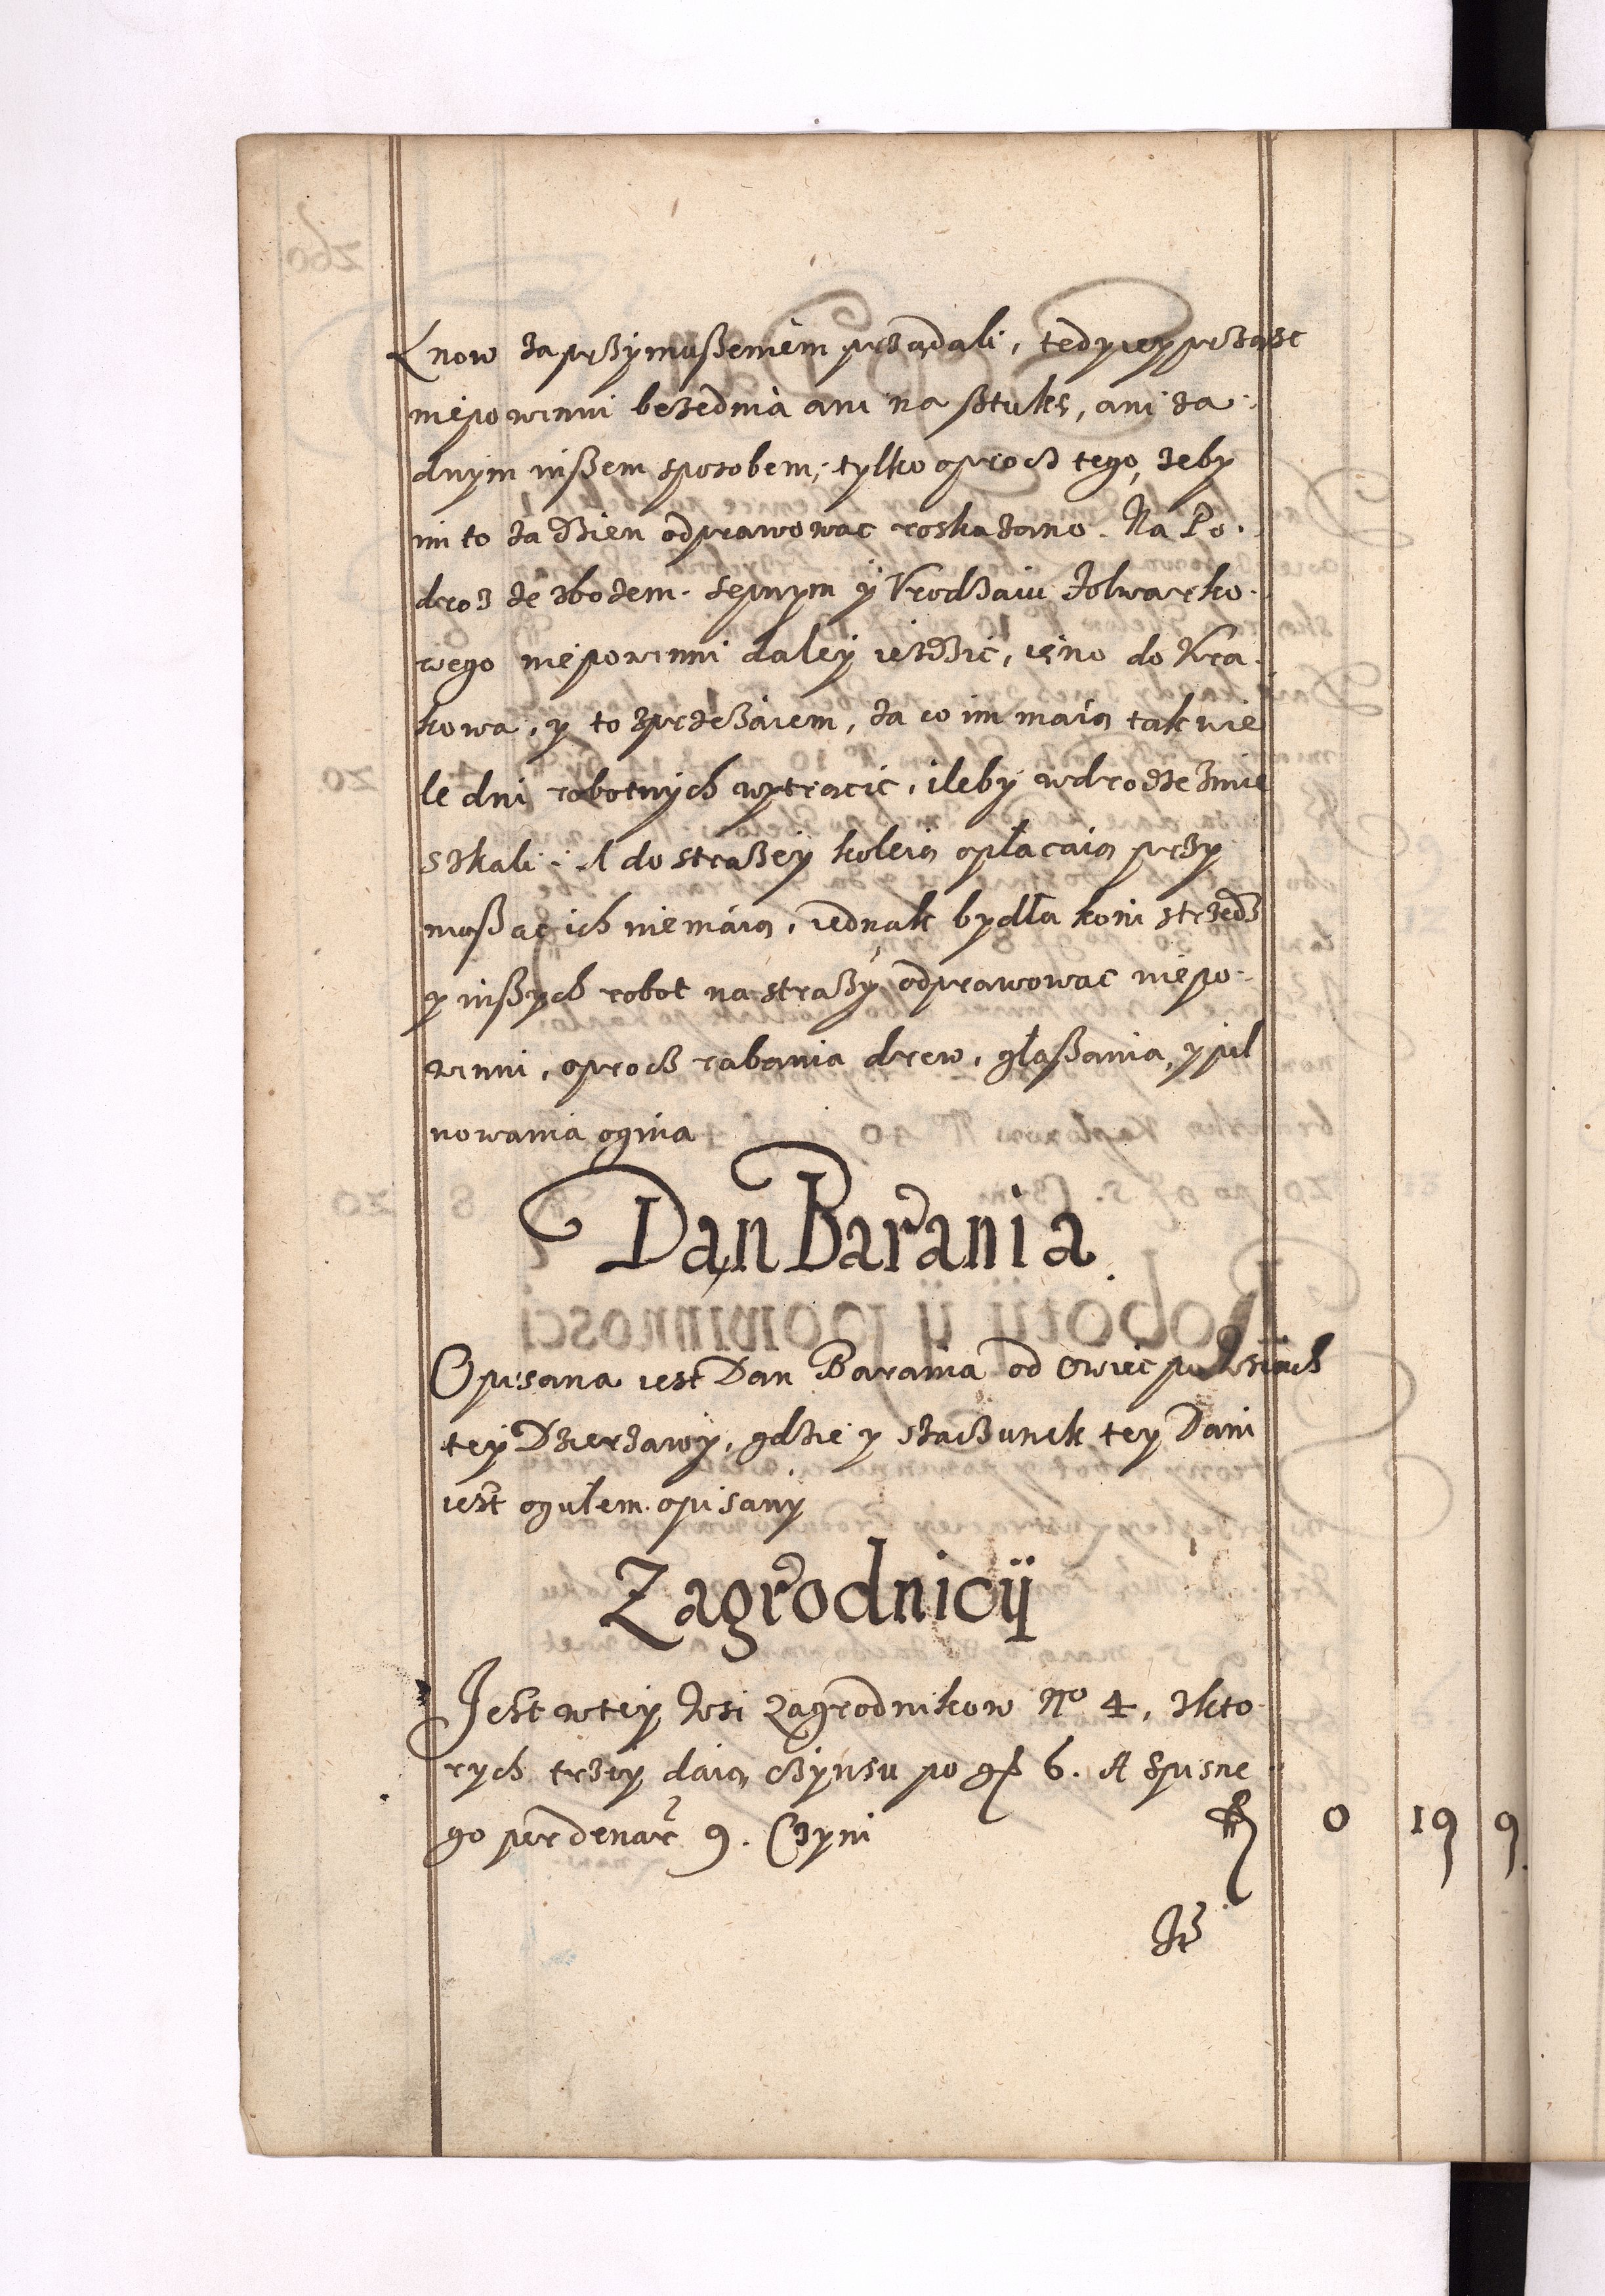 Lnow za przymuszeniem przadali, tedy iey prząsc
niepowinni bezednia ani na sztukę, ani za-
dnym inszem sposobem, tylko oprocz tego, zeby
im to za dzien odprawowac roskazano. Na Po-
droz ze zbozem sepnym y Vrodzaiu folwarko-
wego niepowinni daley iezdzic, ieno do Kra-
kowa, y to zprzeszaiem, za co im maią tak wie
le dni robotnych wytrącic, ileby wdrodze zmie
szkali. A do strazey koleią opłacaią przy
muszac ich niemaią, iednak bydła koni strzedz
y inszych robot na strazy odprawowac niepo-
winni, oprocz rabania drew, głaszania, y pil
nowania ognia
Dan Barania
Opisana iest Dan Barania od Owiec po Wsiach
tey Dzierzawy, gdzie y szaczunek tey Dani
iest ogulem opisany
Zagrodnicy
Jest wtey Wsi Zagrodnikow No 4, zkto-
rych trzey daią czynsu po gr 6. A Spisne
go per denar 9. Czyni fl 0 19 9